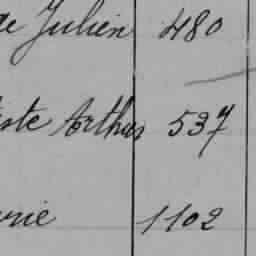 de Julien 480
iste Arthur 537
1102